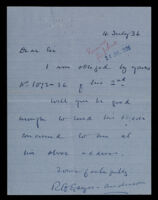 4 July 36
Dear Sir
I was obliged by yours
No 1073-36 of his 2nd.
Will you be good
enough to send his
consigned to me at
his above address.
Yours faithfully
R G Gayer-Anderson